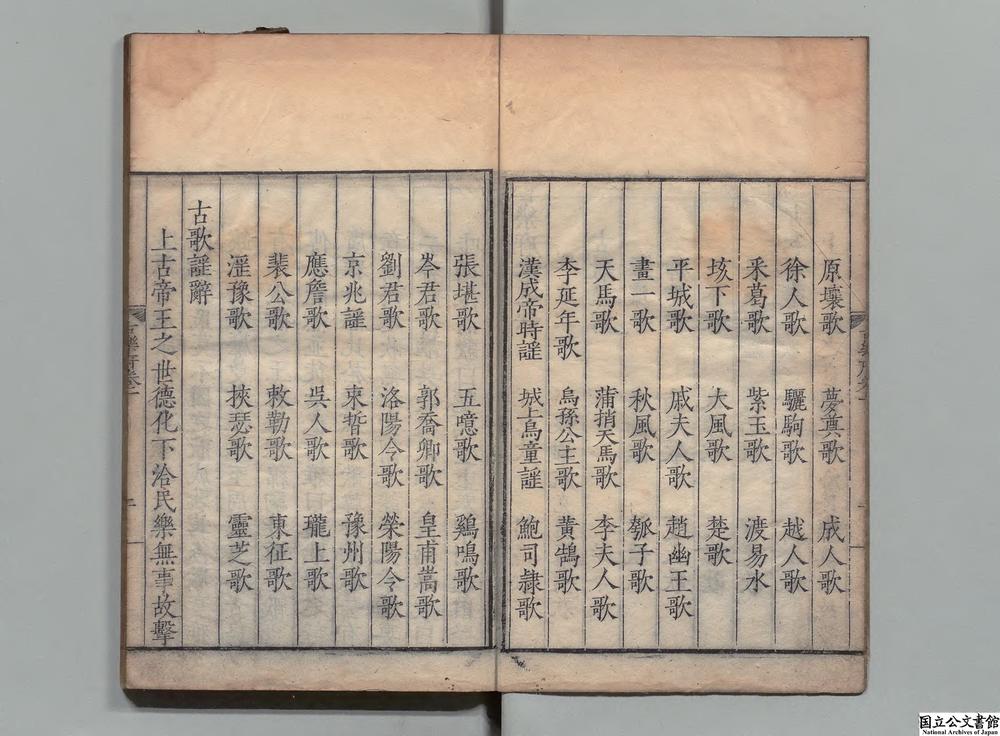 原壤歌 夢奠歌 成人歌
徐人歌 驪駒歌 越人歌
采葛歌 紫玉歌 渡易水
垓下歌 大風歌 楚歌
平城歌 戚夫人歌 趙幽王歌
畫一歌 秋風歌 瓠子歌
天馬歌 蒲捎天馬歌 李夫人歌
李延年歌 烏孫公主歌 黃鵠歌
漢成帝時謡 城上烏童謡 鮑司隷歌
張堪歌 五噫歌 鷄鳴歌
岑君歌 郭喬卿歌 皇甫嵩歌
劉君歌 洛陽令歌 滎陽令歌
京兆謡 束晳歌 豫州歌
應詹歌 吳人歌 隴上歌
裴公歌 敕勒歌 東征歌
淫豫歌 挾瑟歌 靈芝歌
古歌謡辭
上古帝王之世德化下洽民樂無事故擊
国立公文書館
National Archives of Japan